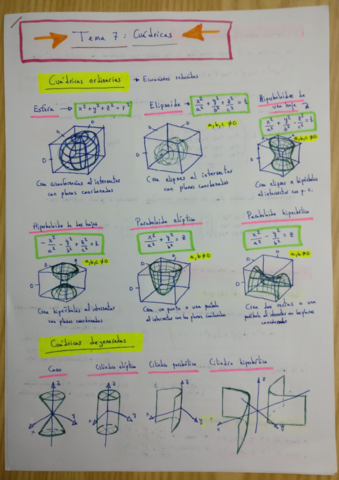 Tema 7: Cuádricas
Cuádricas ordinarias → Ecuaciones reducidas
Esfera → x² + y² + z² = r²
Elipsoide → x²/a² + y²/b² + z²/c² = 1
a, b, c ≠ 0
Hiperboloide de una hoja
x²/a² + y²/b² - z²/c² = 1
a, b, c ≠ 0
Crea circunferencias al intersectar con planos coordenados
Crea elipses al intersectar con planos coordenados
Crea elipses o hipérbolas al intersectar con p.c.
Hiperboloide de dos hojas
Paraboloide elíptico
Paraboloide hiperbólico
a, b, c ≠ 0
x²/a² + y²/b² = z
a, b ≠ 0
x²/a² - y²/b² = z
a, b ≠ 0
Crea hipérbolas al intersectar con planos coordenados
Crea un punto o una parábola al intersectar con los planos coordenados
Crea dos rectas o una parábola al intersectar con los planos coordenados
Cuádricas degeneradas
Cono
Cilindro elíptico
Cilindro parabólico
Cilindro hiperbólico